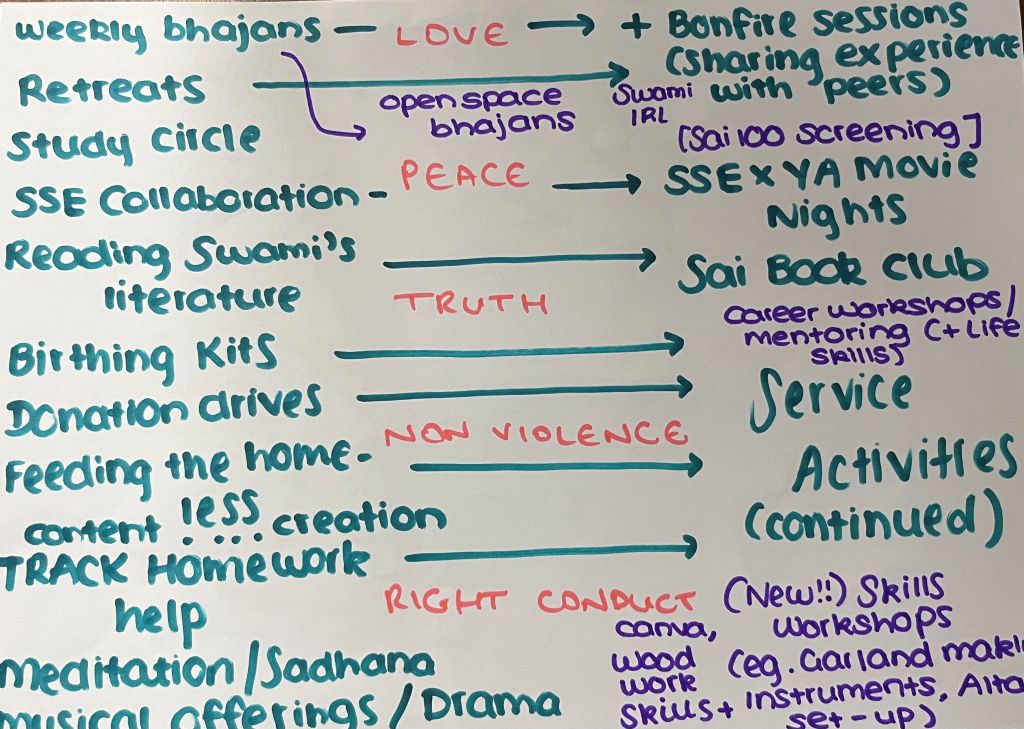 weekly bhajans — LOVE → + Bonfire sessions
(sharing experience
Retreats → with peers)
open space bhajans
Swami IRL
[Sai 100 screening]
Study Circle
SSE Collaboration - PEACE → SSE x YA Movie
Nights
Reading Swami's → Sai Book Club
literature
TRUTH
career workshops/
mentoring (+ Life
skills)
Birthing Kits →
Donation drives → Service
NON VIOLENCE
Feeding the home- → Activities
less
content .... creation
(continued)
TRACK Homework →
help
RIGHT CONDUCT
(New!!) Skills
workshops
canva,
wood
work
skills +
(eg. Garland maki
instruments, Alta
set-up)
Meditation/Sadhana
musical offerings/Drama